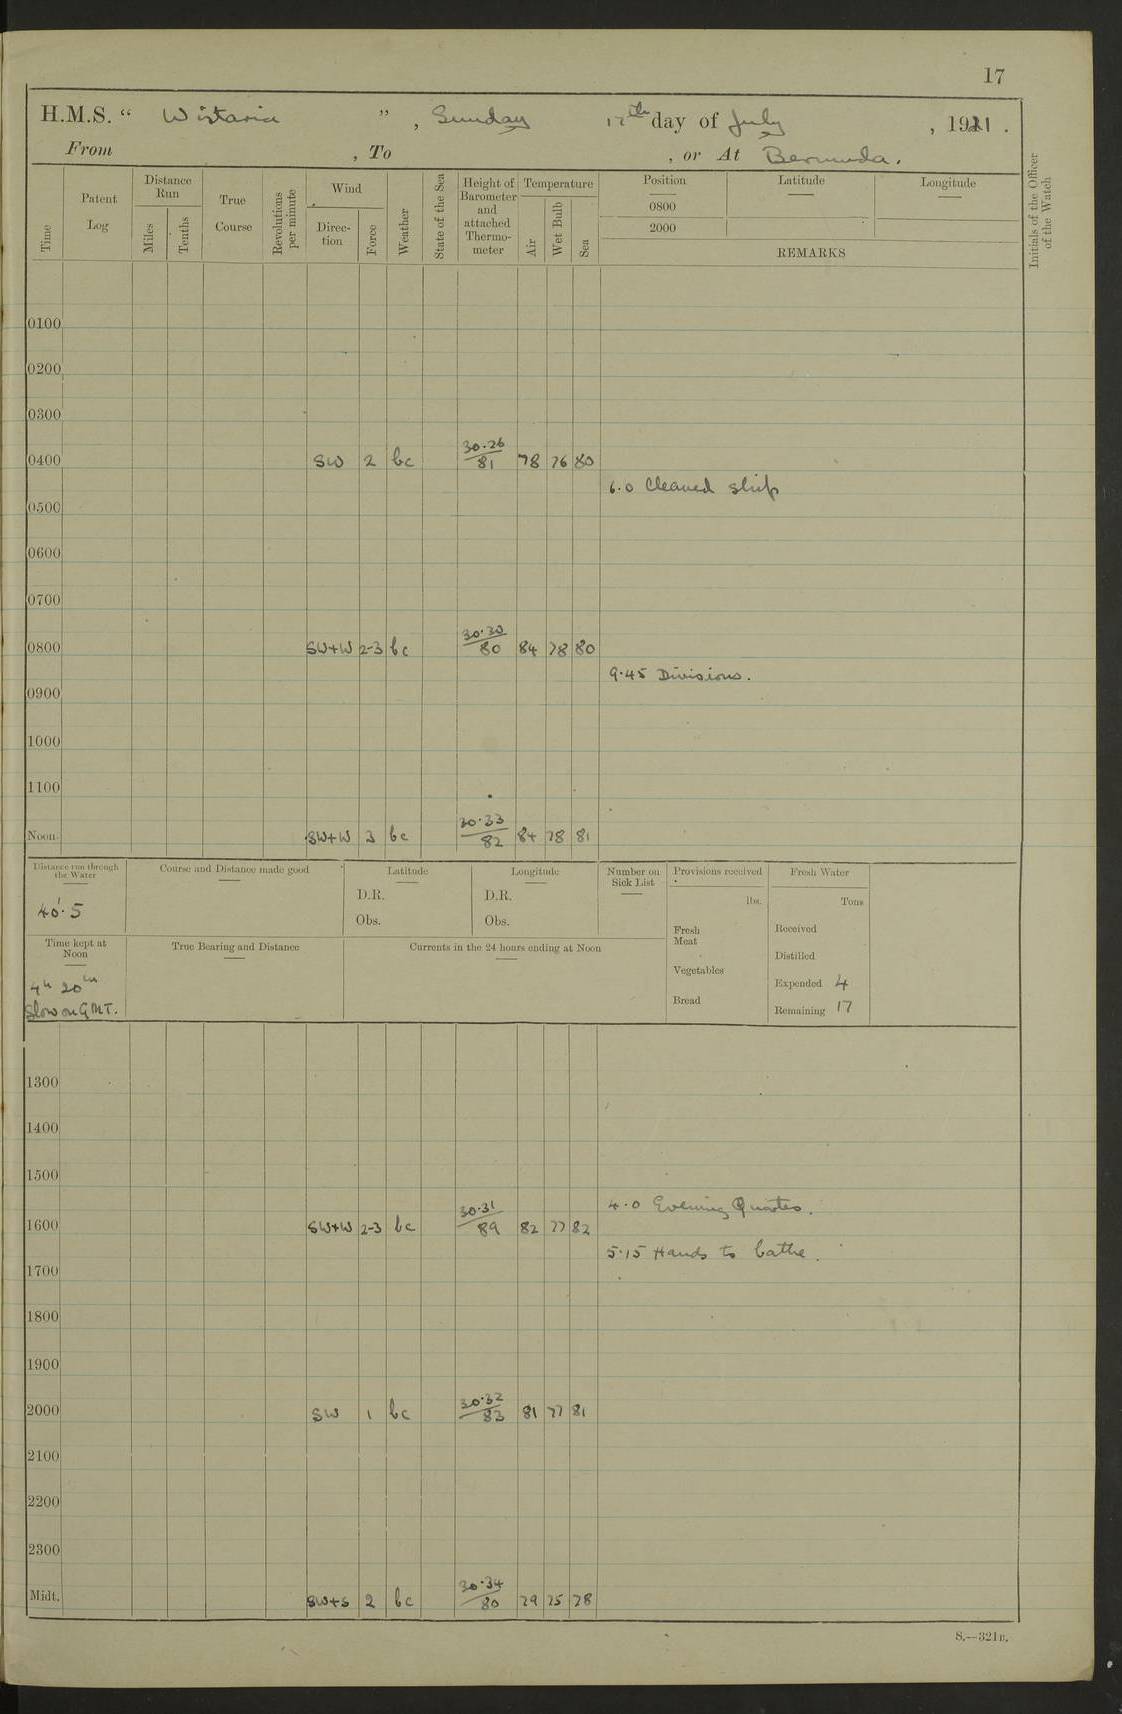 17
H.M.S. “ Wistaria ” , Sunday 17th day of July , 1921 .
From , To , or At Bermuda .
Time Patent Log Distance Run Miles Tenths True Course Revolutions per minute Wind Direction Force Weather State of the Sea Height of Barometer and attached Thermometer Temperature Air Wet Bulb Sea Position 0800 2000 Latitude Longitude REMARKS Initials of the Officer of the Watch
0100
0200
0300
0400 SW 2 bc 30.26/81 78 76 80
6.0 Cleaned ship
0500
0600
0700
0800 SW+W 2-3 bc 30.30/80 84 78 80
9.45 Divisions .
0900
1000
1100
Noon SW+W 3 bc 30.33/82 84 78 81
Distance run through the Water Course and Distance made good Latitude Longitude Number on Sick List Provisions received Fresh Water
D.R. D.R. lbs. Tons
40'.5 Obs. Obs.
Fresh Meat Received
Time kept at Noon True Bearing and Distance Currents in the 24 hours ending at Noon
Distilled
Vegetables
4h 20m Expended 4
Bread
Slow on G.M.T. Remaining 17
1300
1400
1500
4.0 Evening Quarters .
1600 SW+W 2-3 bc 30.31/89 82 77 82
5.15 Hands to bathe .
1700
1800
1900
2000 SW 1 bc 30.32/83 81 77 81
2100
2200
2300
Midt. SW+S 2 bc 30.34/80 79 75 78
S.—321B.